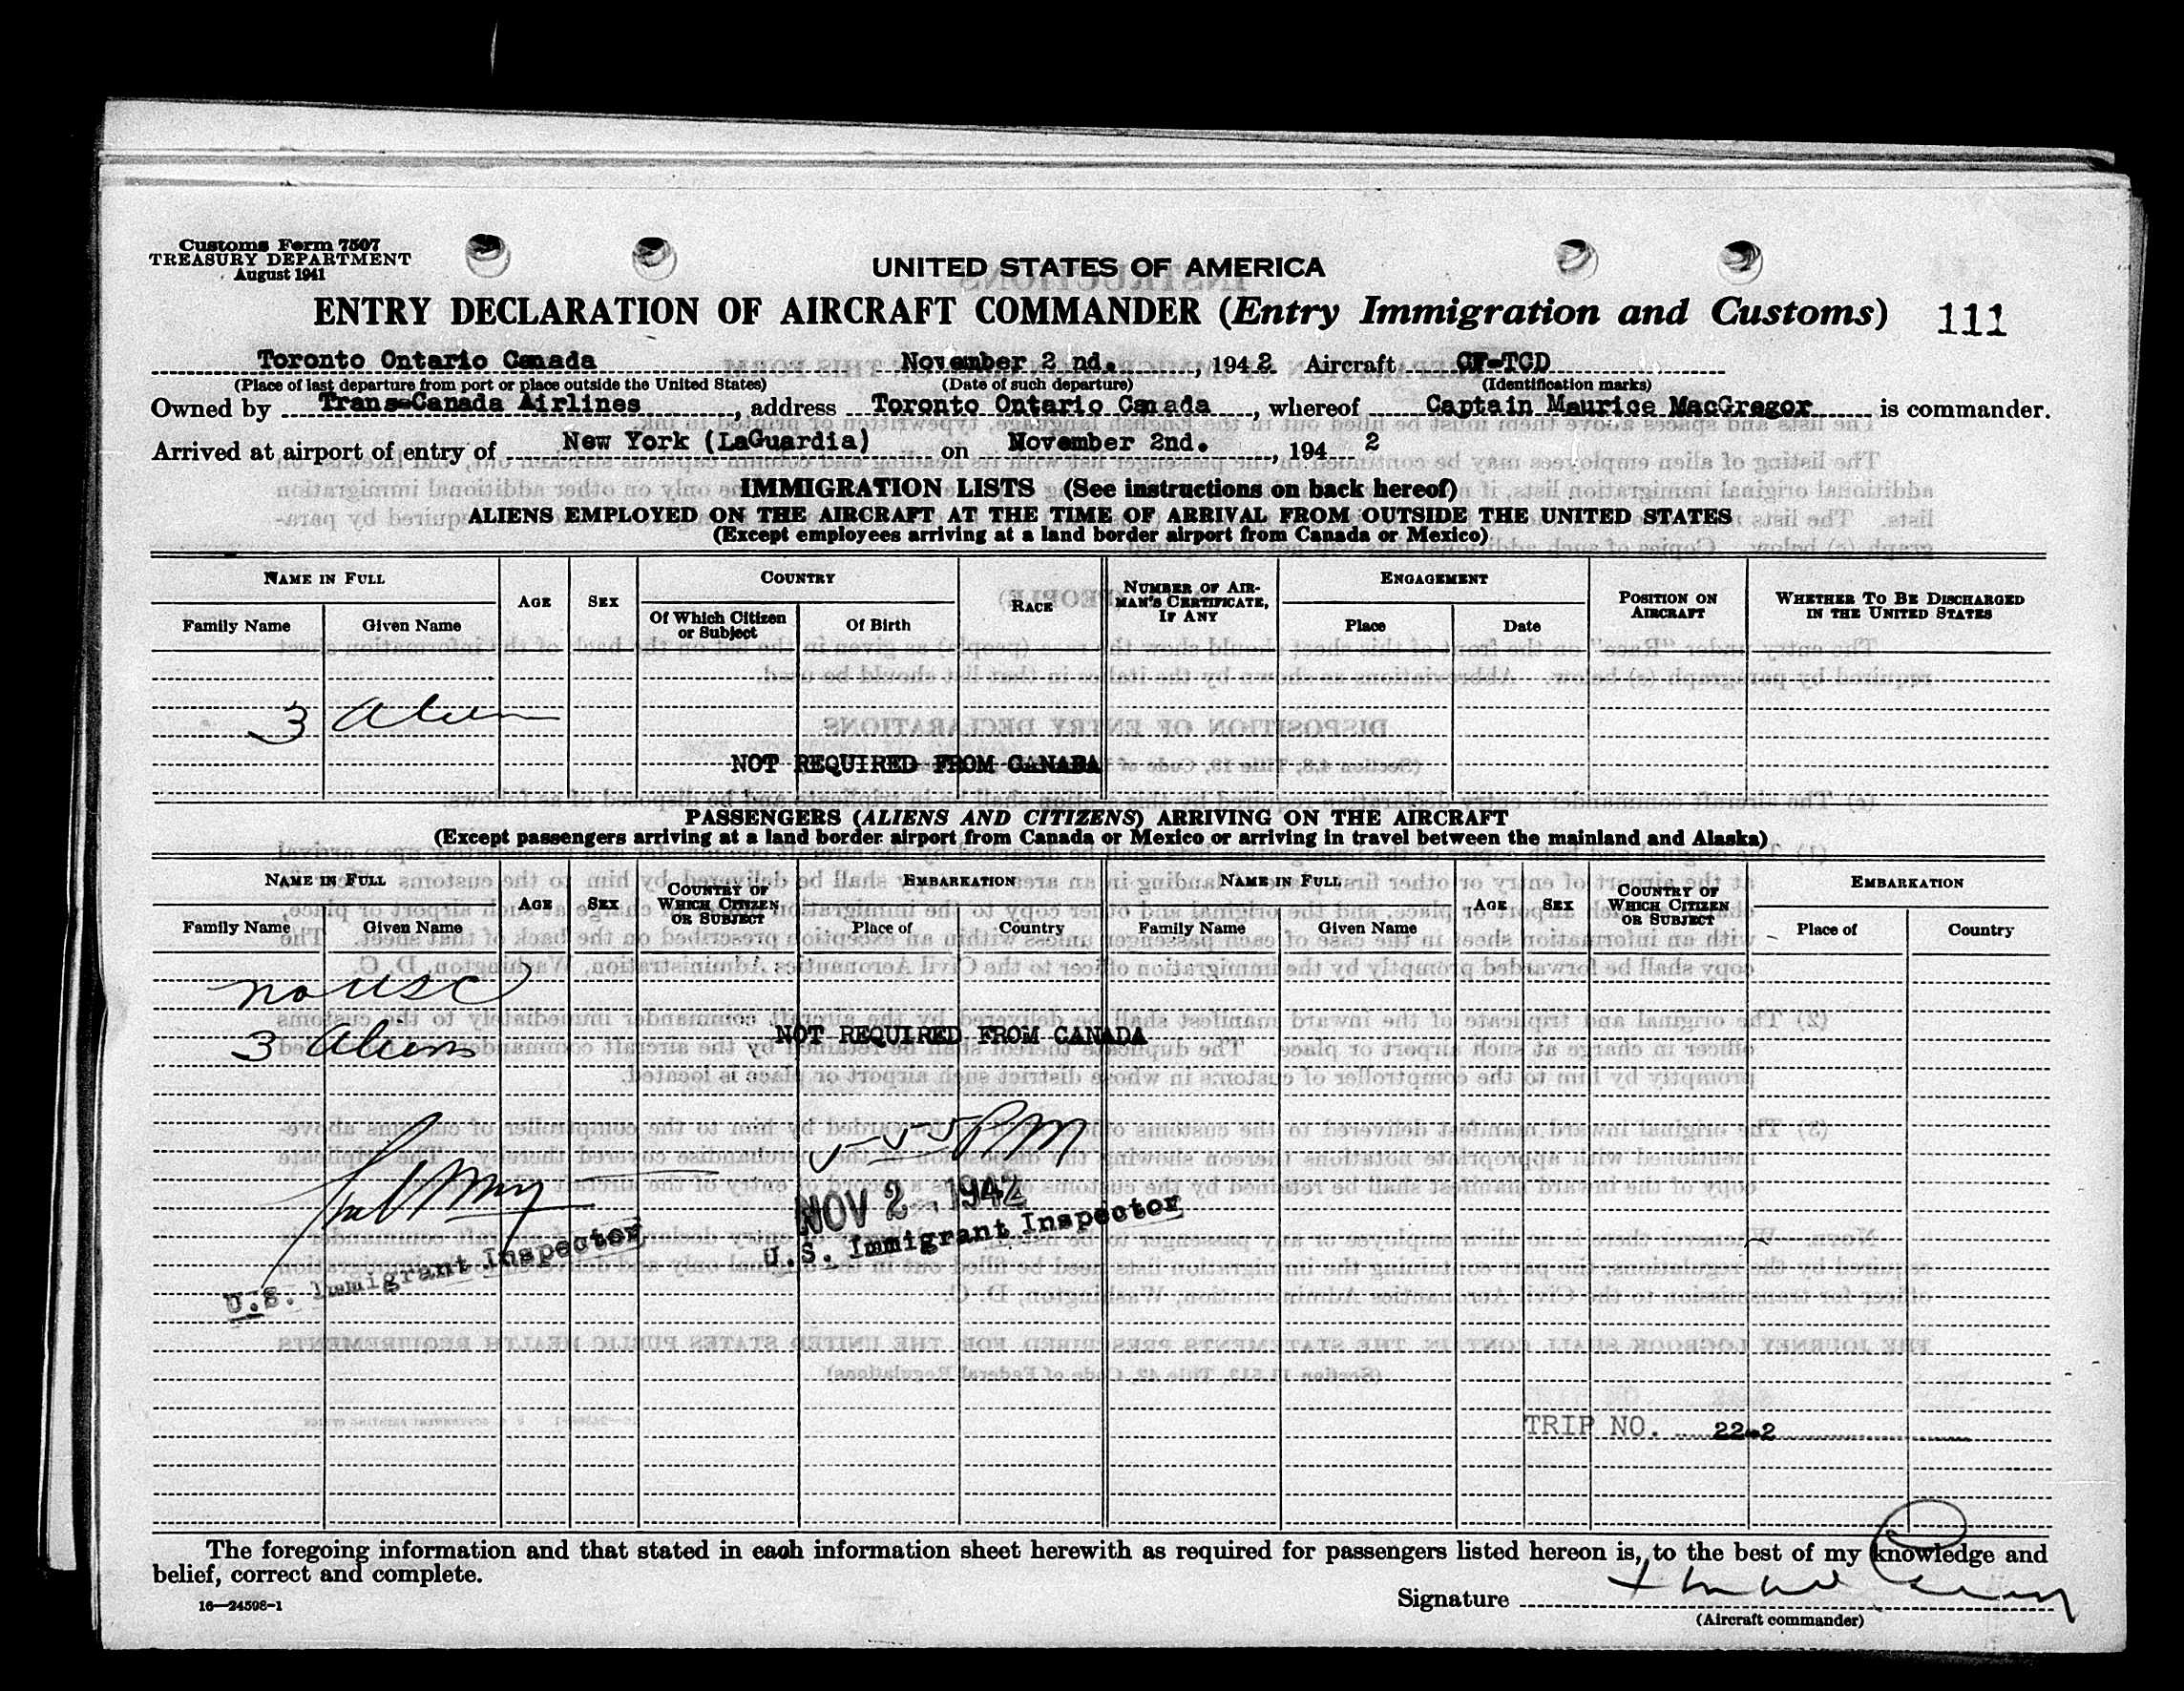 Customs Form 7507
TREASURY DEPARTMENT
August 1941
UNITED STATES OF AMERICA
ENTRY DECLARATION OF AIRCRAFT COMMANDER (Entry Immigration and Customs) 111
Toronto Ontario Canada November 2 nd. , 1942 Aircraft CF-TCD
(Place of last departure from port or place outside the United States) (Date of such departure) (Identification marks)
Owned by Trans-Canada Airlines , address Toronto Ontario Canada , whereof Captain Maurice MacGregor is commander.
Arrived at airport of entry of New York (LaGuardia) on November 2nd. , 194 2
IMMIGRATION LISTS (See instructions on back hereof)
ALIENS EMPLOYED ON THE AIRCRAFT AT THE TIME OF ARRIVAL FROM OUTSIDE THE UNITED STATES
(Except employees arriving at a land border airport from Canada or Mexico)
NAME IN FULL AGE SEX COUNTRY RACE NUMBER OF AIR-MAN'S CERTIFICATE, IF ANY ENGAGEMENT POSITION ON AIRCRAFT WHETHER TO BE DISCHARGED IN THE UNITED STATES
Family Name Given Name Of Which Citizen or Subject Of Birth Place Date
3 Alien
NOT REQUIRED FROM CANADA
PASSENGERS (ALIENS AND CITIZENS) ARRIVING ON THE AIRCRAFT
(Except passengers arriving at a land border airport from Canada or Mexico or arriving in travel between the mainland and Alaska)
NAME IN FULL AGE SEX COUNTRY OF WHICH CITIZEN OR SUBJECT EMBARKATION NAME IN FULL AGE SEX COUNTRY OF WHICH CITIZEN OR SUBJECT EMBARKATION
Family Name Given Name Place of Country Family Name Given Name Place of Country
no USC
3 Aliens
NOT REQUIRED FROM CANADA
PM
NOV 2 - 1942
U.S. Immigrant Inspector
U.S. Immigrant Inspector
TRIP NO. 22-2
The foregoing information and that stated in each information sheet herewith as required for passengers listed hereon is, to the best of my knowledge and
belief, correct and complete.
Signature
16—24598-1
(Aircraft commander)